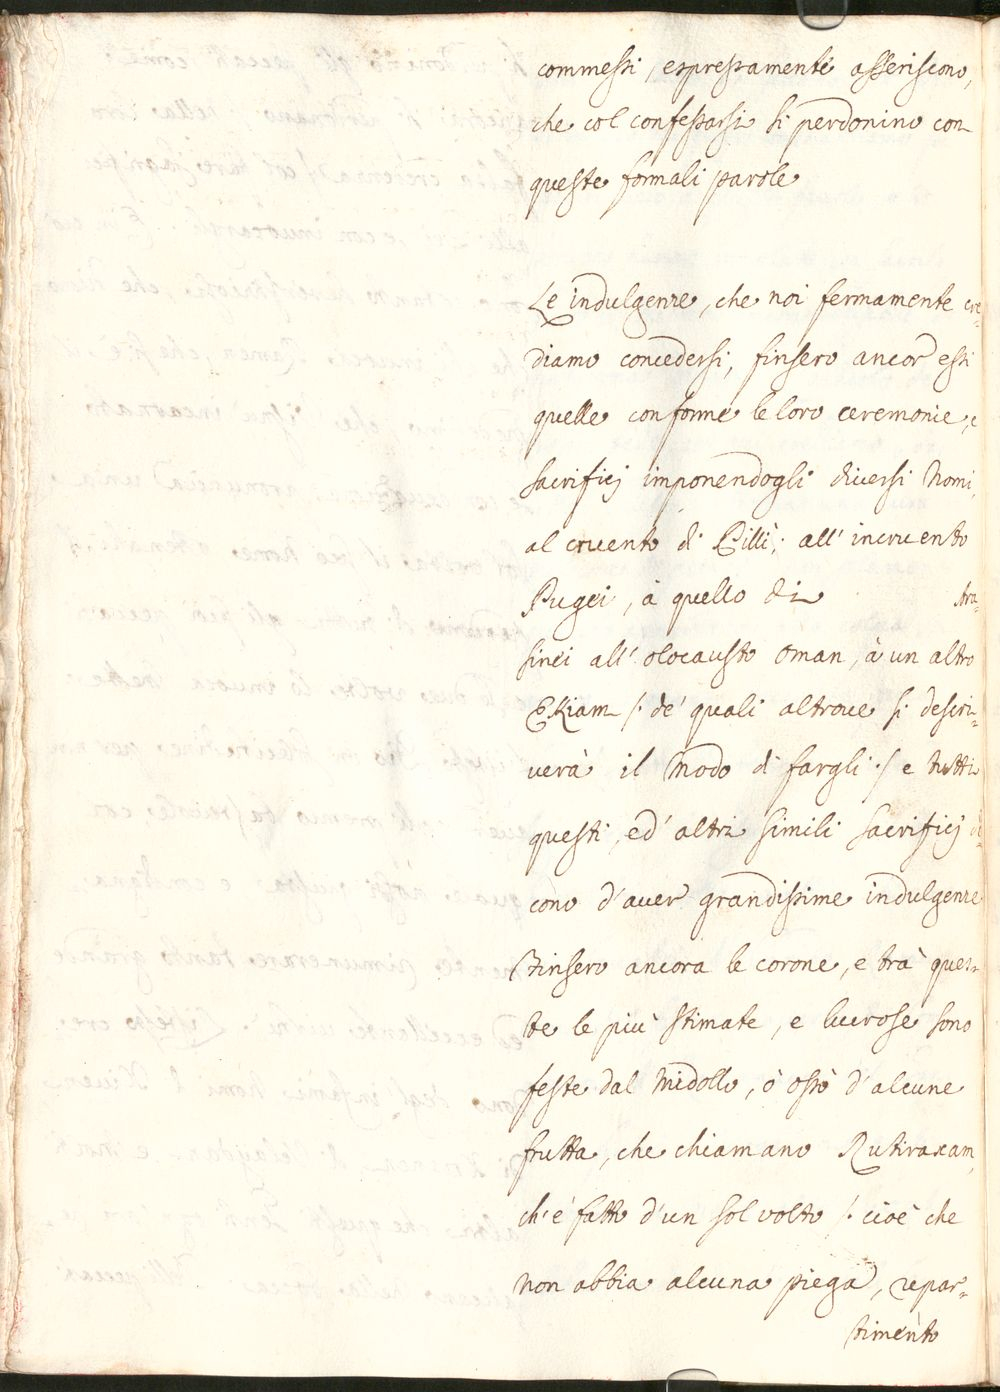 commessi, espressamente asseriscono,
che col confessarsi si perdonino con
queste formali parole
Le indulgenze, che noi fermamente cre-
diamo concedersi, finsero ancor essi
quelle conforme le loro ceremonie, e
sacrificj imponendogli diversi nomi,
al cruento di Pilli; all' incruento
Pugei, à quello di
sinei all' olocausto Oman, à un altro
EKiam /: de' quali altroue si descri-
verà il modo di fargli :/ e tutti
questi, ed' altri simili sacrificj di-
cono d'auer grandissime indulgenze
Finsero ancora le corone, e trà ques-
te le più stimate, e lucrose sono
feste dal midollo, ò osso d'alcune
frutta, che chiamano Rutiraxam,
ch'è fatto d'un sol volto /: cioè che
non abbia alcuna piega, repar-
timento